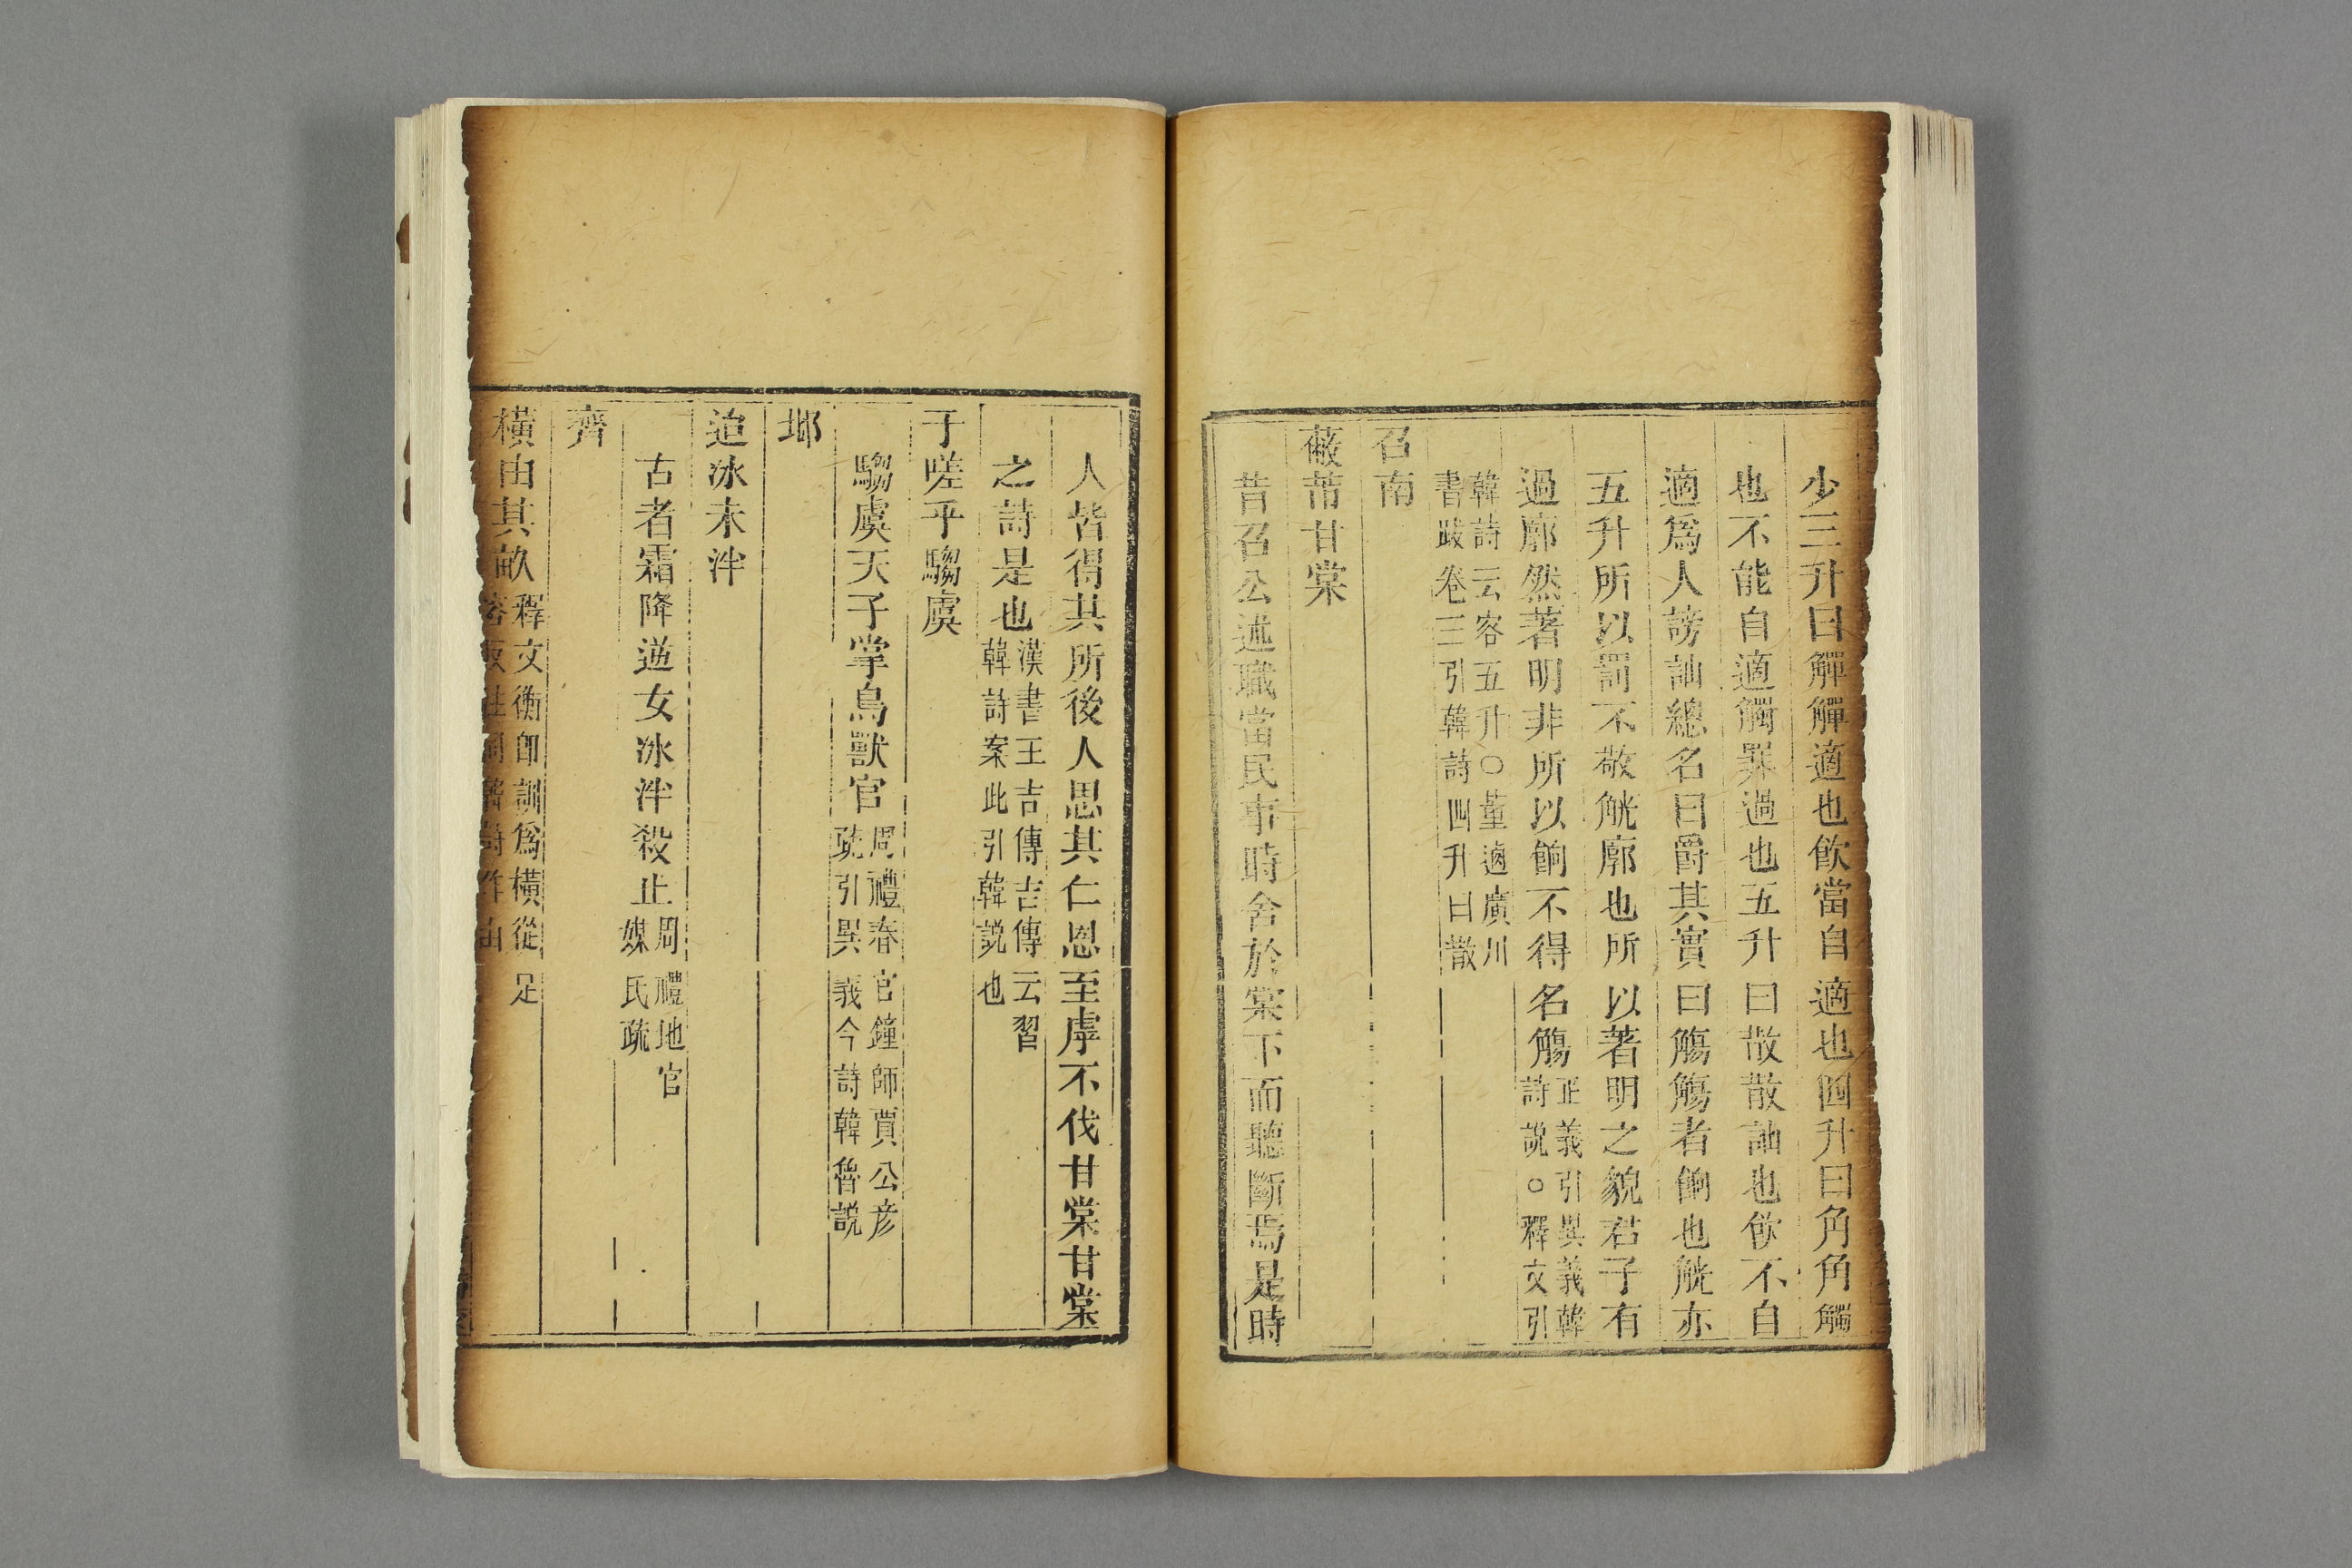 少三升曰觶觶適也飲當自適也四升曰角角觸
也不能自適觸罪過也五升曰散散訕也飲不自
適爲人謗訕總名曰爵其實曰觴觴者餉也觥亦
五升所以罰不敬觥廓也所以著明之貌君子有
過廓然著明非所以餉不得名觴正義引異義韓
詩説○釋文引
韓詩云容五升○董逌廣川
書跋卷三引韓詩四升曰散
召南
蔽芾甘棠
昔召公述職當民事時舍於棠下而聽斷焉是時
人皆得其所後人思其仁恩至虖不伐甘棠甘棠
之詩是也漢書王吉傳吉傳云習
韓詩案此引韓説也
于嗟乎騶虞
騶虞天子掌鳥獸官周禮春官鐘師賈公彥
疏引異義今詩韓魯説
邶
迨冰未泮
古者霜降逆女冰泮殺止周禮地官
媒氏疏
齊
橫由其畝釋文衡卽訓爲橫從足